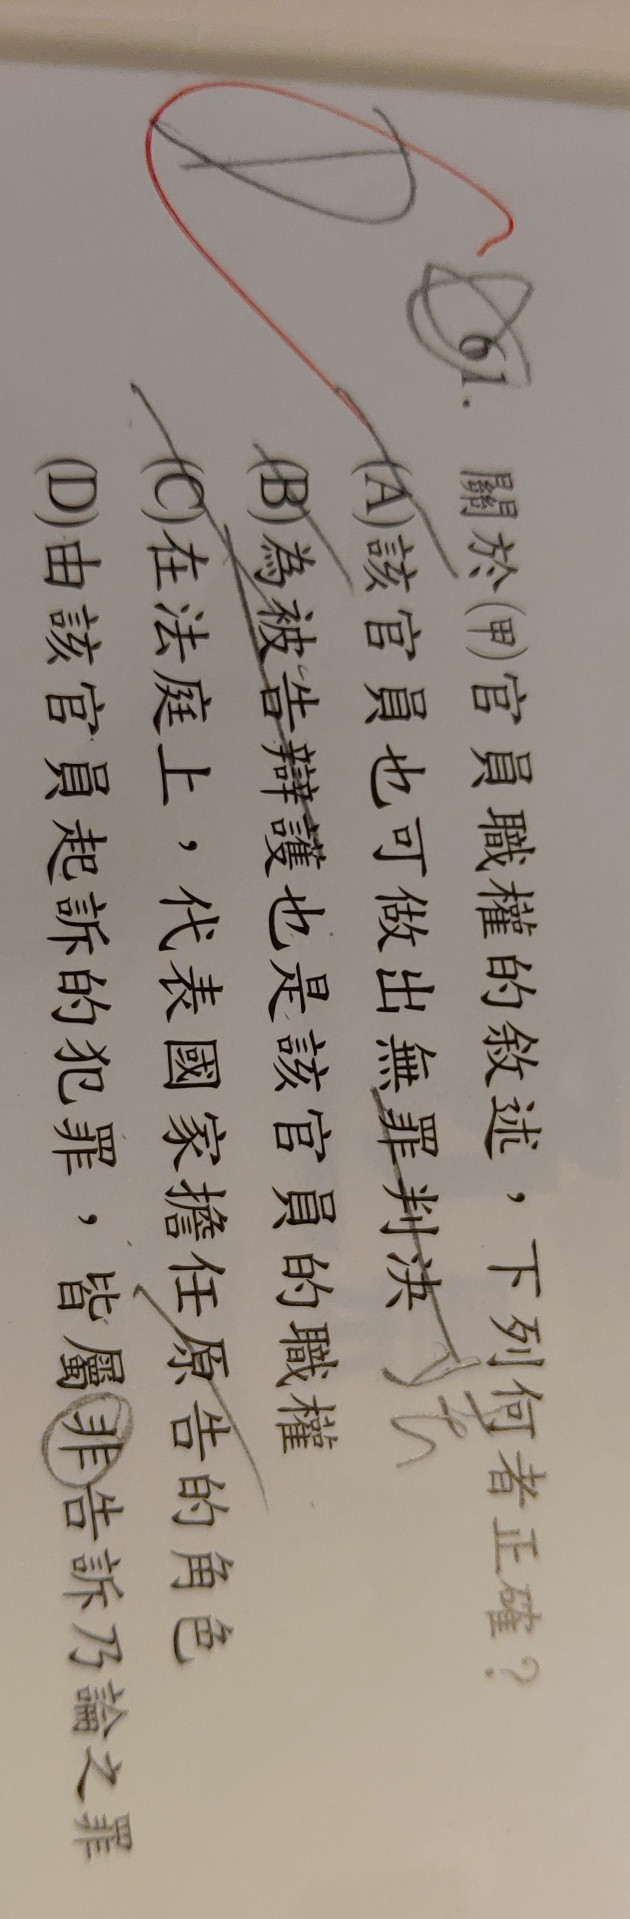 61. 關於(甲)官員職權的敘述，下列何者正確？
(A)該官員也可做出無罪判決
(B)為被告辯護也是該官員的職權
(C)在法庭上，代表國家擔任原告的角色
(D)由該官員起訴的犯罪，皆屬非告訴乃論之罪